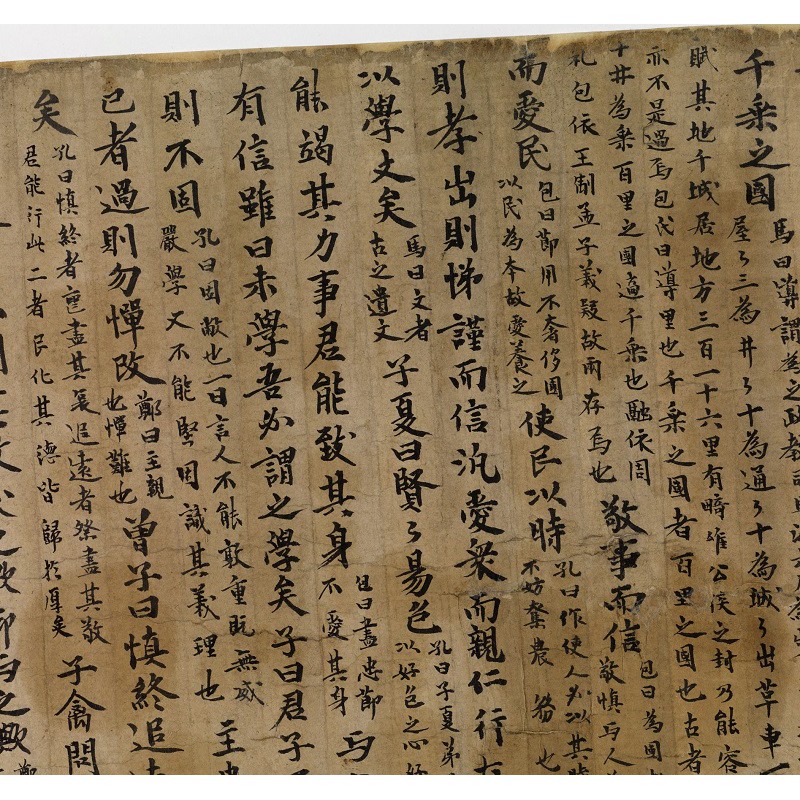 千乗之國
馬曰導謂為之政教司馬法六尺為
屋々三為井々十為通々十為城々出草車一
賦其地千城居地方三百一十六里有畸雖公侯之封乃能容
亦不是過焉包氏曰導里也千乗之國者百里之國也古者
十井為乗百里之國適千乗也融依周
礼包依王制孟子義疑故兩存焉也
敬事而信
包曰為國
敬慎与人
而愛民
包曰節用不奢侈國
以民為本故愛養之
使民以時
孔曰作使人必以其時
不妨奪農務也
則孝出則悌謹而信汎愛衆而親仁行有
以學文矣
馬曰文者
古之遺文
子夏曰賢々易色
孔曰子夏弟
以好色之心好
能竭其力事君能致其身
包曰盡忠節
不愛其身
与
有信雖曰未學吾必謂之學矣子曰君子
則不固
孔曰固蔽也一曰言人不能敦重既無威
嚴學又不能堅固識其義理也
主
已者過則勿憚改
鄭曰主親
也憚難也
曾子曰慎終追
矣
孔曰慎終者喪盡其哀追遠者祭盡其敬
君能行此二者民化其德皆歸於厚矣
子禽問